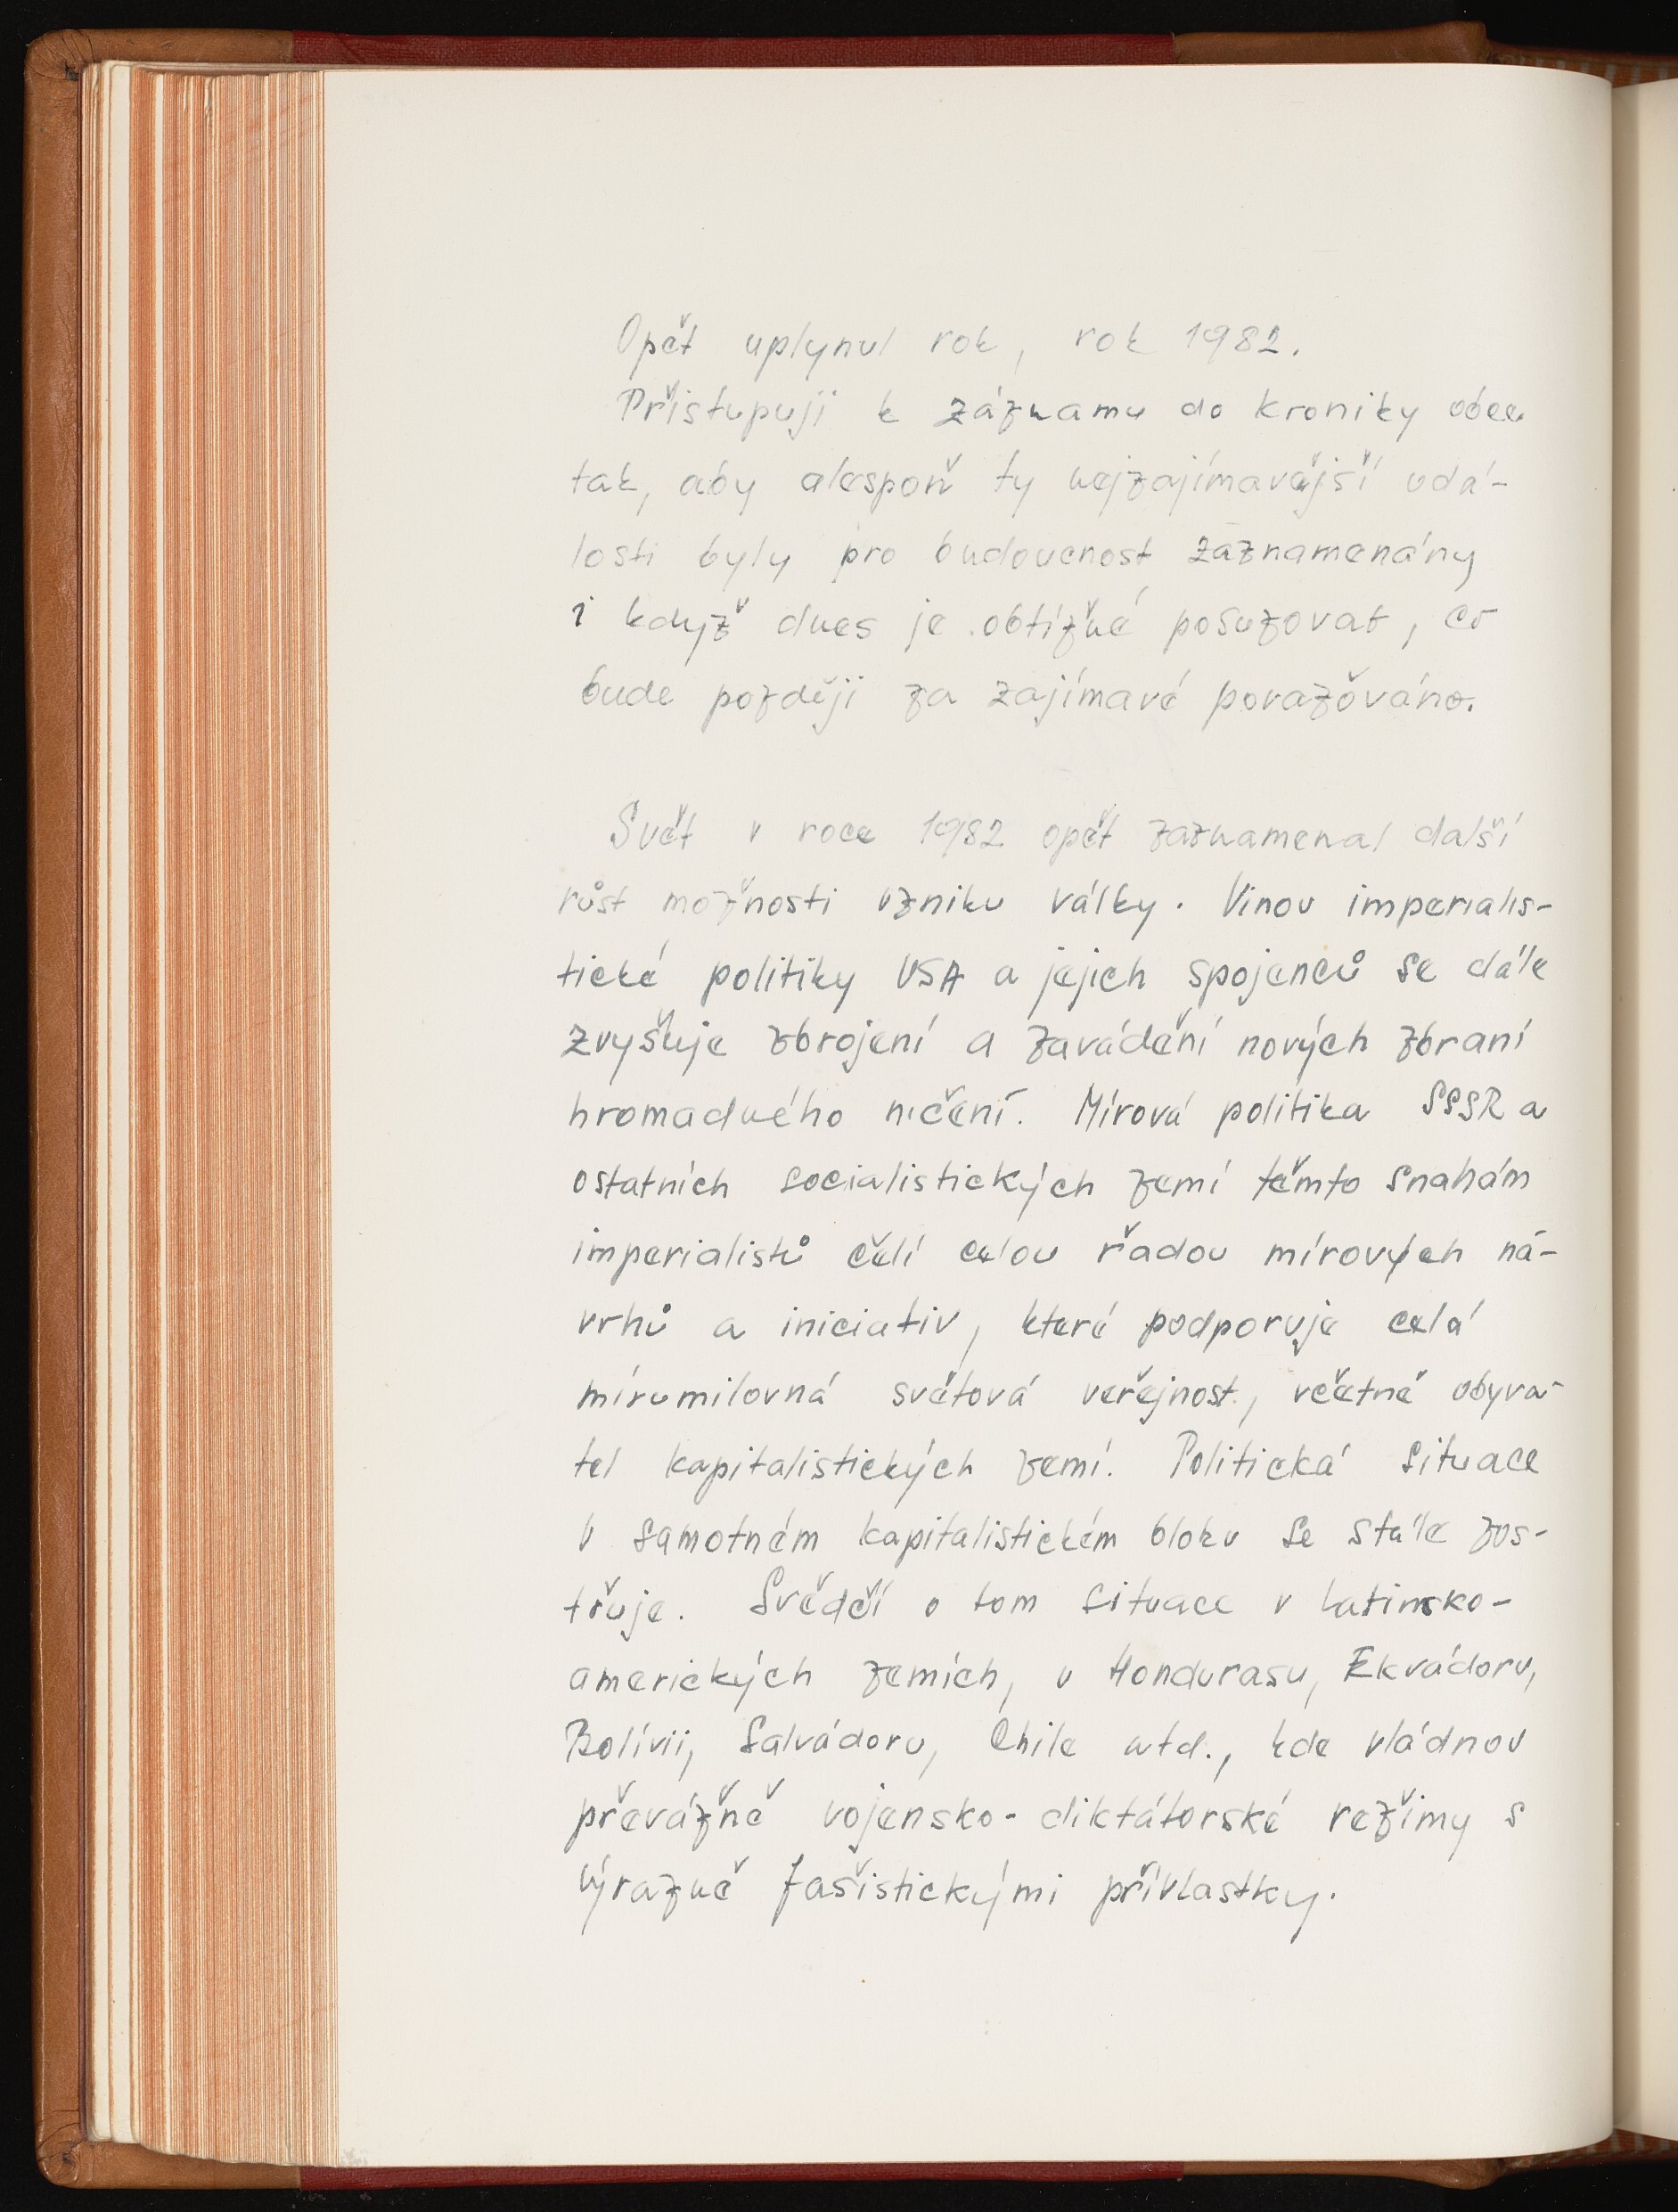 Opět uplynul rok, rok 1982.
Přistupuji k záznamu do kroniky obce
tak, aby alespoň ty nejzajímavější udá-
losti byly pro budoucnost zaznamenány
i když dnes je obtížné posuzovat, co
bude později za zajímavé považováno.
Svět v roce 1982 opět zaznamenal další
růst možnosti vzniku války. Vinou imperialis-
tické politiky USA a jejich spojenců se dále
zvyšuje zbrojení a zavádění nových zbraní
hromadného ničení. Mírová politika SSSR a
ostatních socialistických zemí těmto snahám
imperialistů čelí celou řadou mírových ná-
vrhů a iniciativ, které podporuje celá
mírumilovná světová veřejnost, včetně obyva-
tel kapitalistických zemí. Politická situace
v samotném kapitalistickém bloku se stále zos-
třuje. Svědčí o tom situace v latinsko-
amerických zemích, v Hondurasu, Ekvádoru,
Bolívii, Salvádoru, Chile atd., kde vládnou
převážně vojensko-diktátorské režimy s
výrazně fašistickými přívlastky.